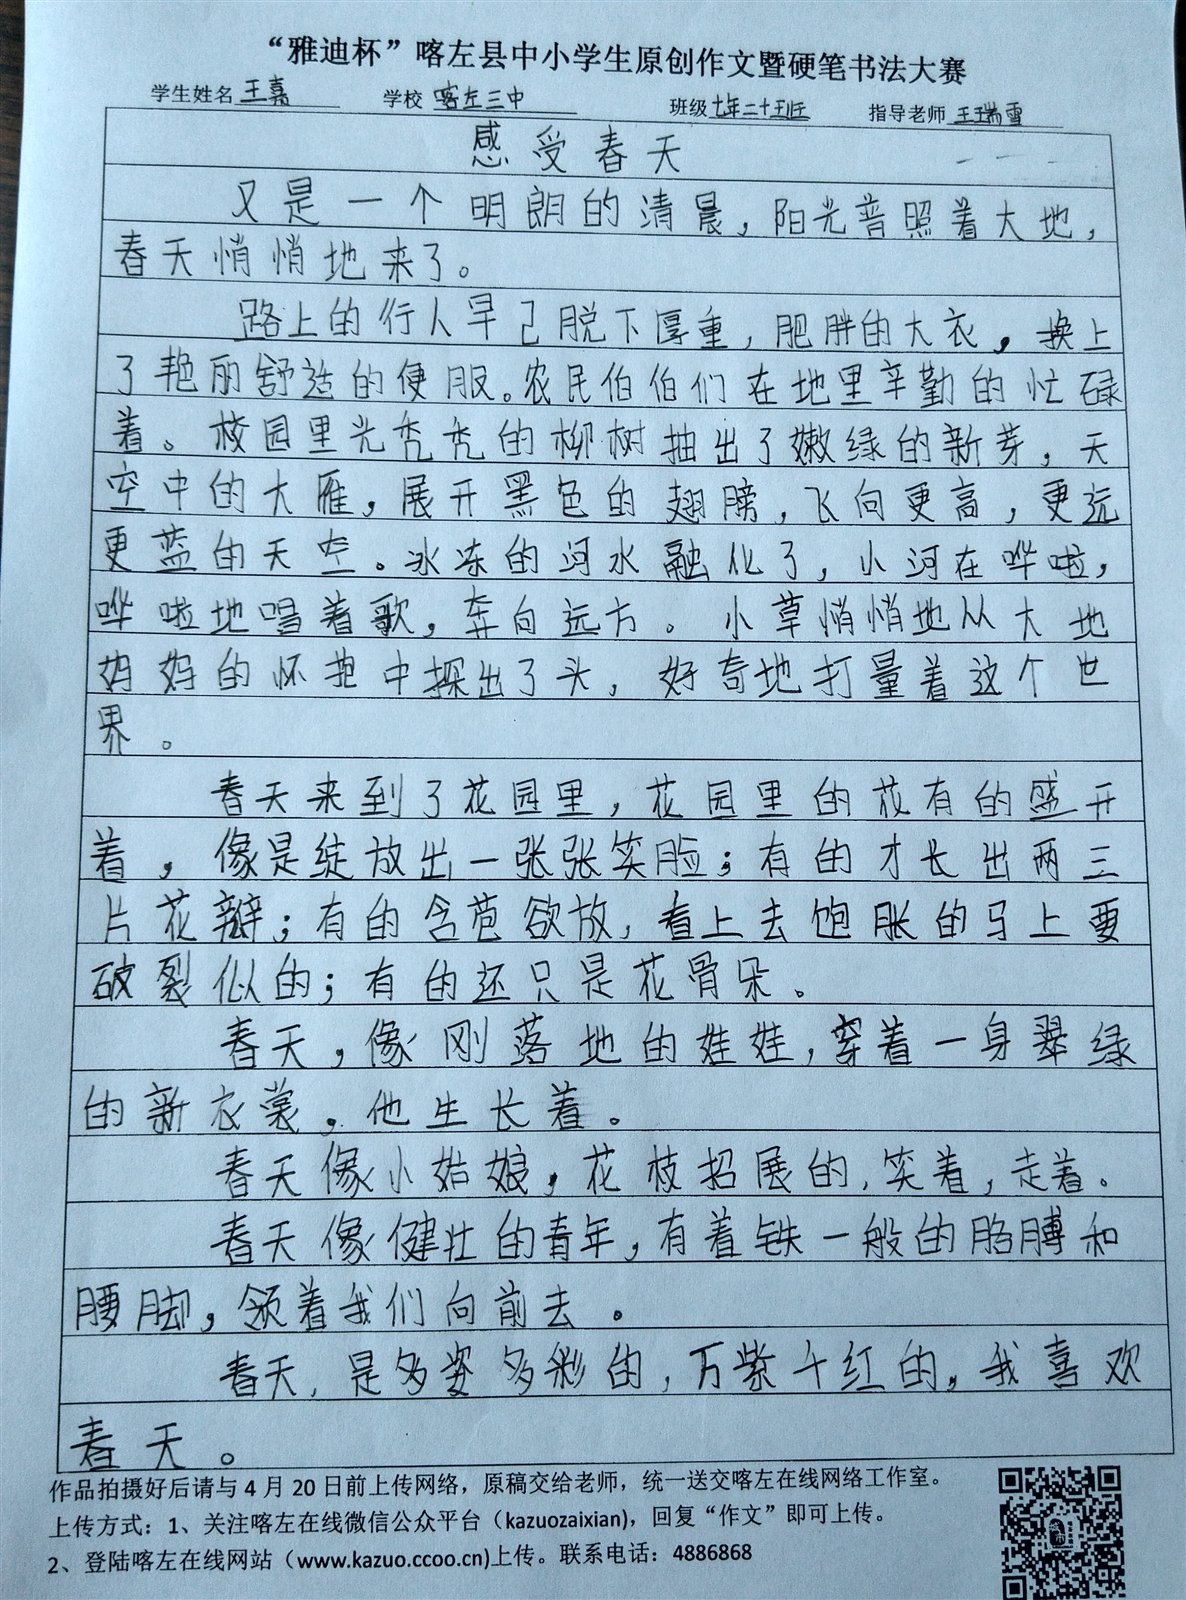 “雅迪杯”喀左县中小学生原创作文暨硬笔书法大赛
学生姓名 王嘉 学校 喀左三中 班级 七年二十五班 指导老师 王瑞雪
感受春天
又是一个明朗的清晨，阳光普照着大地，
春天悄悄地来了。
路上的行人早已脱下厚重，肥胖的大衣，换上
了艳丽舒适的便服。农民伯伯们在地里辛勤的忙碌
着。校园里光秃秃的柳树抽出了嫩绿的新芽，天
空中的大雁，展开黑色的翅膀，飞向更高，更远
更蓝的天空。冰冻的河水融化了，小河在哗啦，
哗啦地唱着歌，奔向远方。小草悄悄地从大地
妈妈的怀抱中探出了头，好奇地打量着这个世
界。
春天来到了花园里，花园里的花有的盛开
着，像是绽放出一张张笑脸；有的才长出两三
片花瓣；有的含苞欲放，看上去饱胀的马上要
破裂似的；有的还只是花骨朵。
春天，像刚落地的娃娃，穿着一身翠绿
的新衣裳，他生长着。
春天像小姑娘，花枝招展的，笑着，走着。
春天像健壮的青年，有着铁一般的胳膊和
腰脚，领着我们向前去。
春天，是多姿多彩的，万紫千红的，我喜欢
春天。
作品拍摄好后请与 4 月 20 日前上传网络，原稿交给老师，统一送交喀左在线网络工作室。
上传方式：1、关注喀左在线微信公众平台（kazuozaixian)，回复“作文”即可上传。
2、登陆喀左在线网站（www.kazuo.ccoo.cn)上传。联系电话：4886868